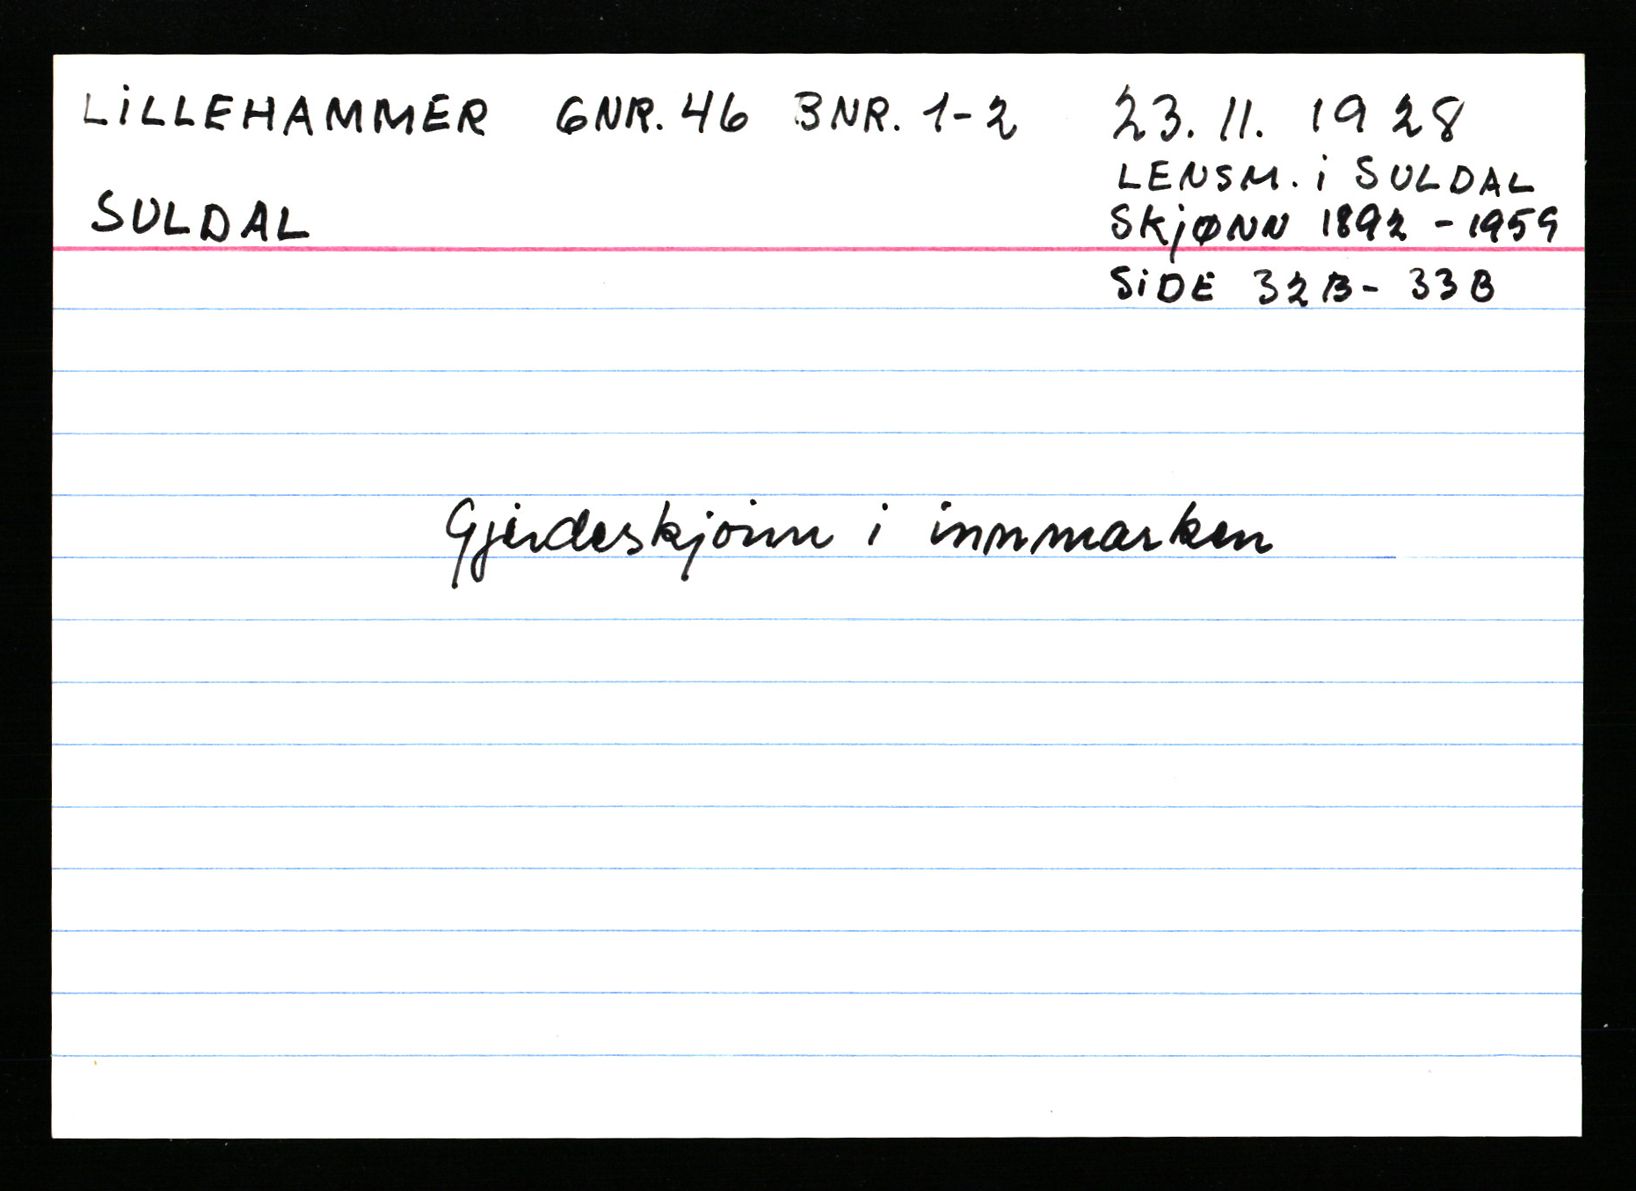 LILLEHAMMER GNR. 46 BNR. 1-2 23. 11. 1928
LENSM. i SULDAL
SULDAL SKJØNN 1892 - 1959
SIDE 32B - 33B
Gjerdeskjønn i innmarken